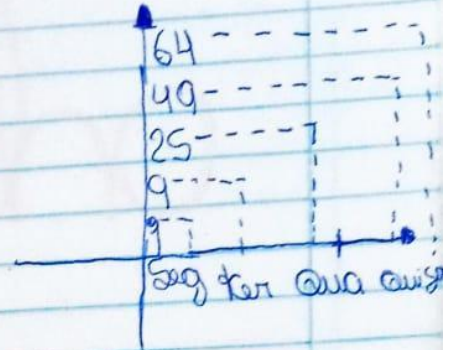 64
49
25
9
9
Seg Ter Qua Quin